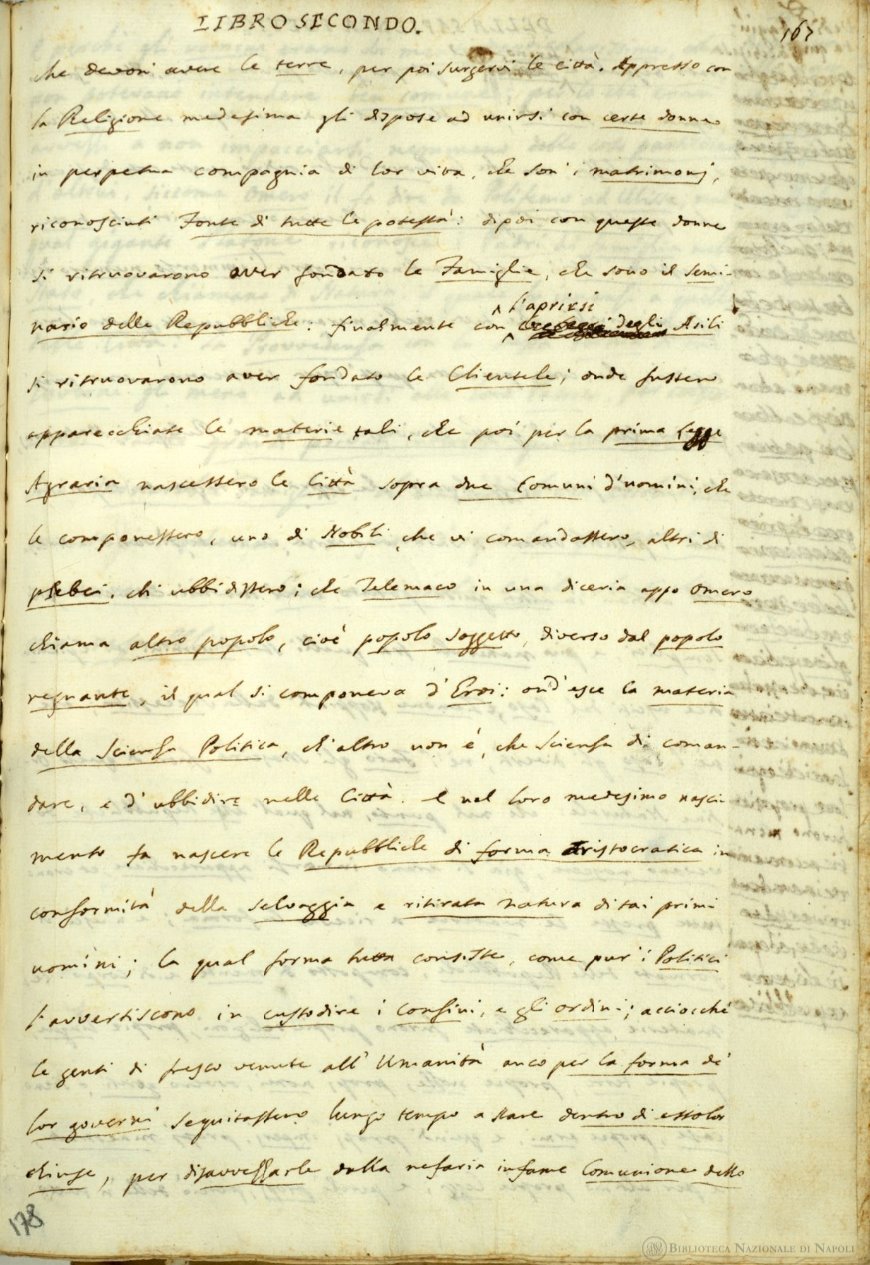 LIBRO SECONDO.
167
che devoni avere le terre, per poi surgervi le città. Appresso con
la Religione medesima gli dispose ad unirsi con certe donne
in perpetua compagnia di lor vita, che son' i matrimonj,
riconosciuti Fonte di tutte le potestà: dipoi con queste donne
si ritruovarono aver fondato le Famiglie, che sono il semi-
nario delle Repubbliche: finalmente con l'aprirsi degli Asili
si ritruovarono aver fondato le Clientele; onde fussero
apparecchiate le materie tali, che poi per la prima Legge
Agraria nascessero le Città sopra due Comuni d'uomini, che
le componessero, uno di Nobili, che vi comandassero, altri di
plebei, ch' ubbidissero; che Telemaco in una diceria appo Omero
chiama altro popolo, cioè popolo soggetto, diverso dal popolo
regnante, il qual si componeva d'Eroi: ond'esce la materia
della Scienza Politica, ch'altro non è, che Scienza di coman-
dare, e d'ubbidire nelle Città. e nel loro medesimo nasci-
mento fa nascere le Repubbliche di forma Aristocratica in
conformità della selvaggia e ritirata natura di tai primi
uomini; la qual forma tutta consiste, come pur' i Politici
l'avvertiscono in custodire i confini, e gli ordini; acciocché
le genti di fresco venute all' Umanità anco per la forma de'
lor governi seguitassero lungo tempo a stare dentro di essolor
chiuse, per disavvezzarle dalla nefaria infame Comunione delle
178
BIBLIOTECA NAZIONALE DI NAPOLI